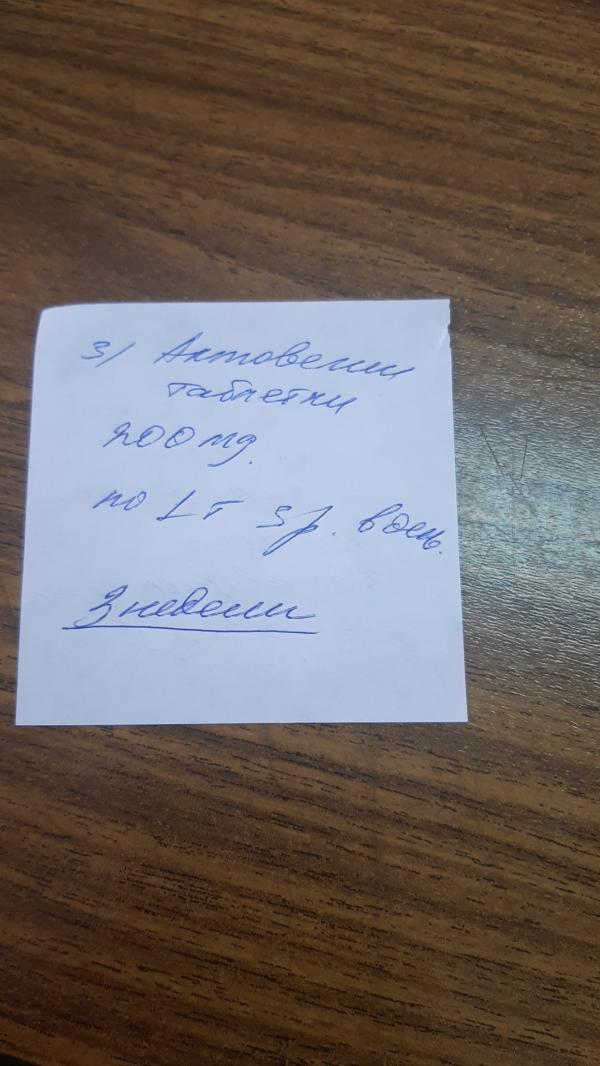 3/ Актовегин
таблетки
200 мg.
по 1 т 3 р. в день.
3 недели